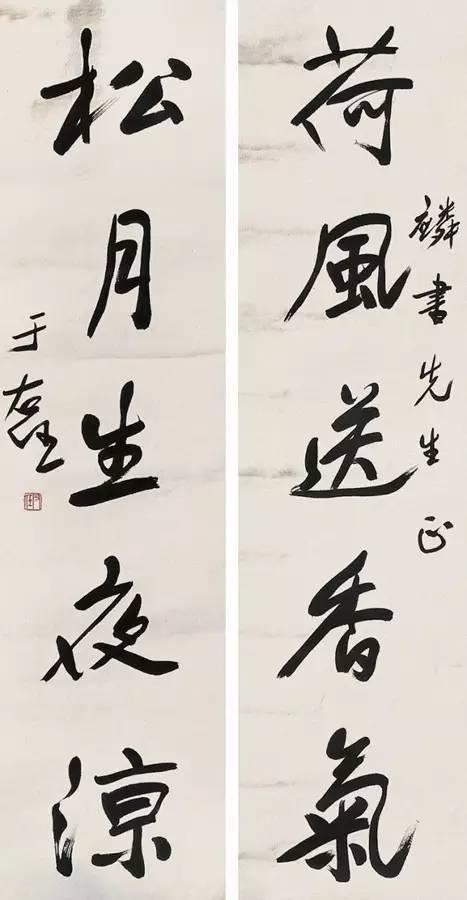 荷風送香氣
麟書先生正
松月生夜涼
于右任